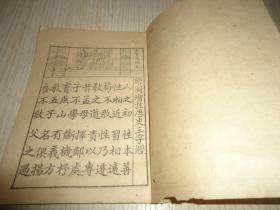 繪圖增註歷史三字經
人之初性本善
性相近習相遠
苟不教性乃遷
教之道貴以專
昔孟母擇鄰處
子不學斷機杼
竇燕山有義方
教五子名俱揚
養不教父之過